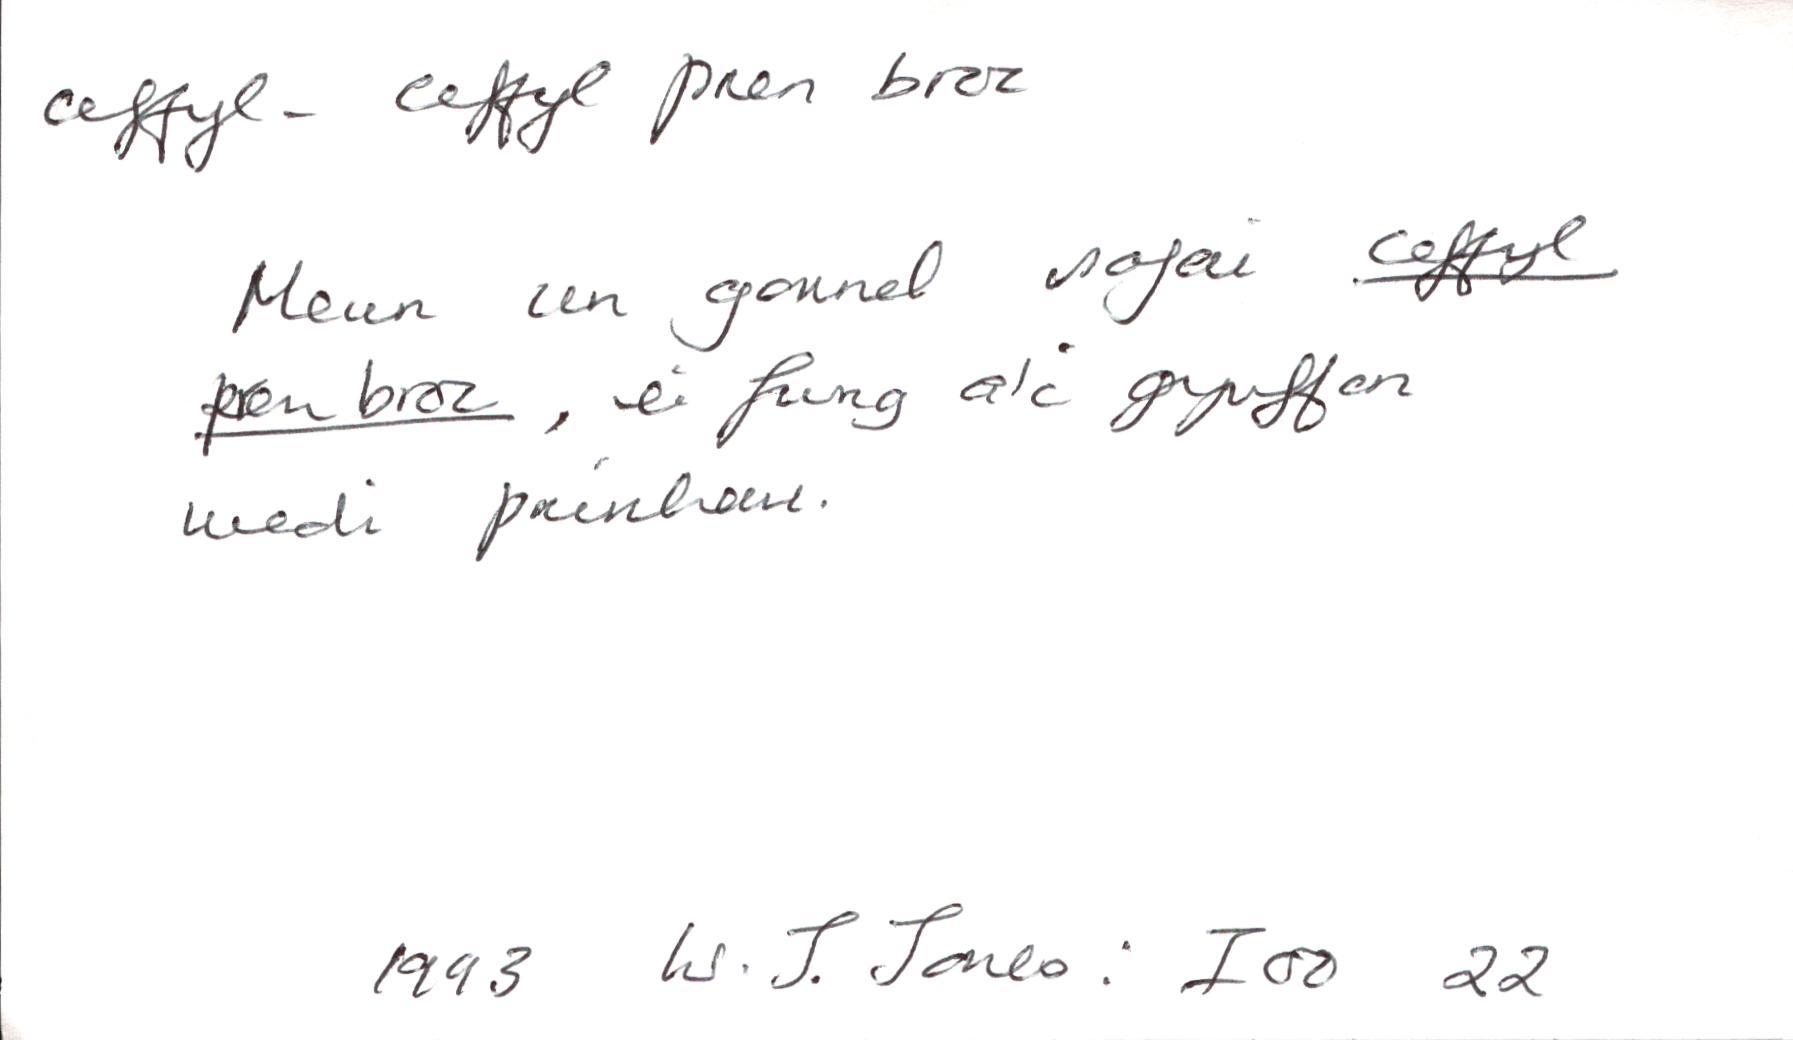 ceffyl - ceffyl pren broc
Mewn un gornel safai ceffyl
pren broc, ei fwng a'i gynffon
wedi prinhau.
1993 W. J. Jones: Ioo 22